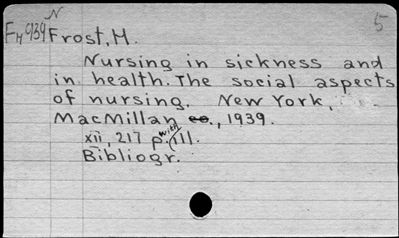 N 5
FM 939 Frost, M.
Nursing in sickness and
in health. The social aspects
of nursing. New York,
MacMillan co., 1939.
xii, 217 p. with ill.
Bibliogr.